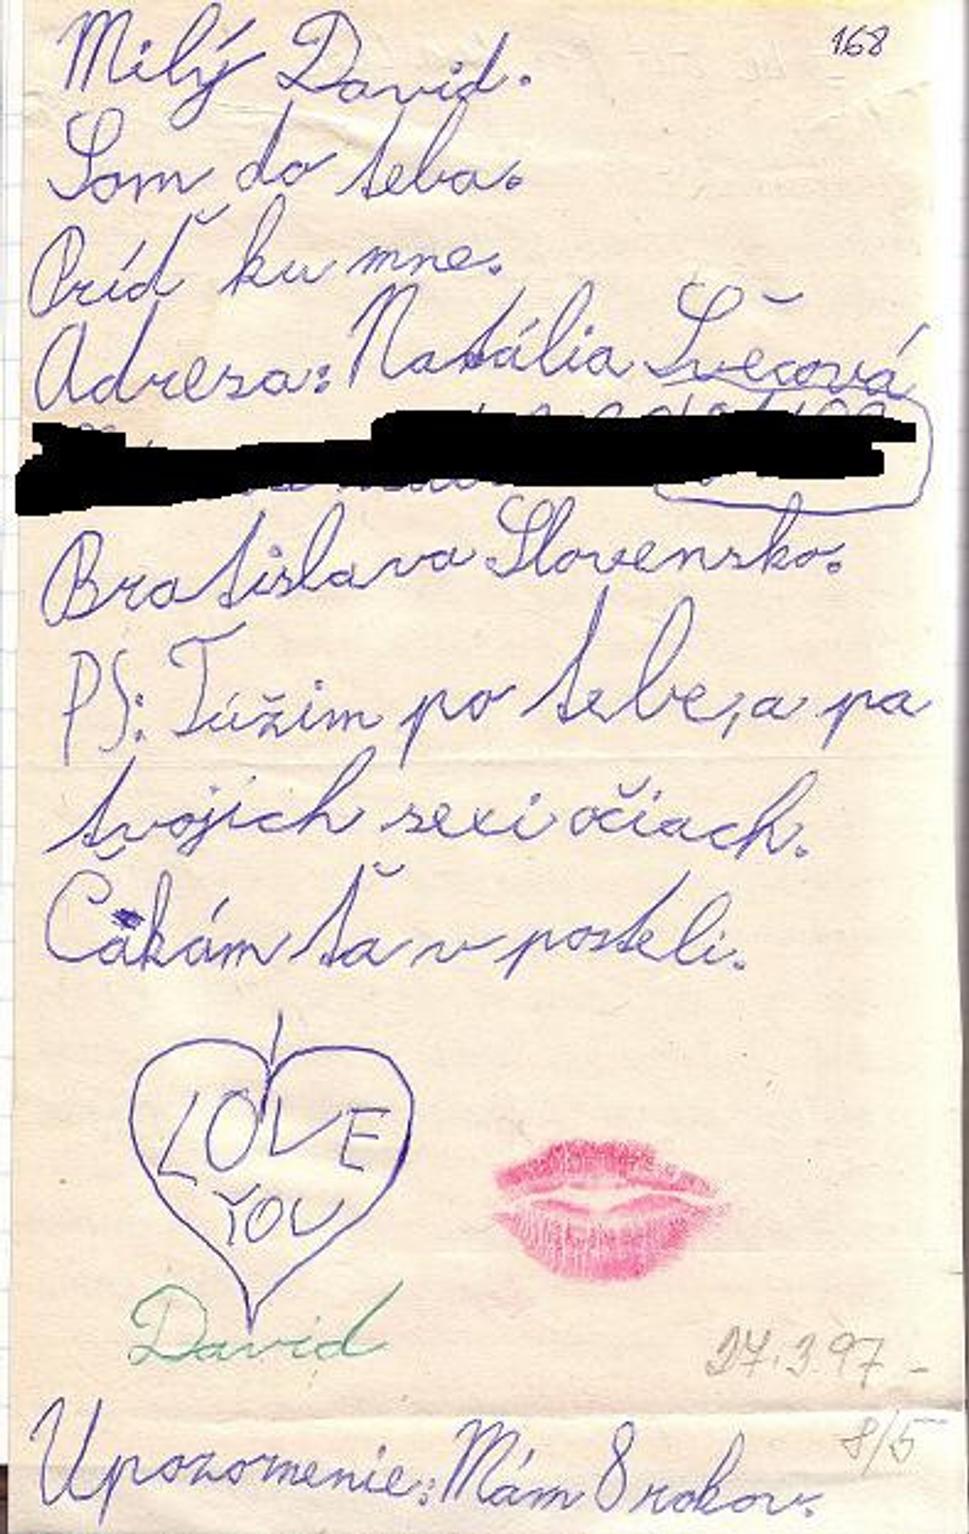 168
Milý David.
Som do teba.
Príď ku mne.
Adresa: Natália Švecová
Bratislava Slovensko.
PS: Túžim po tebe, a pa
tvojich sexi očiach.
Čakám ťa v posteli.
LOVE
YOU
David
27.3.97 -
8/5
Upozornenie: Mám 8 rokov.